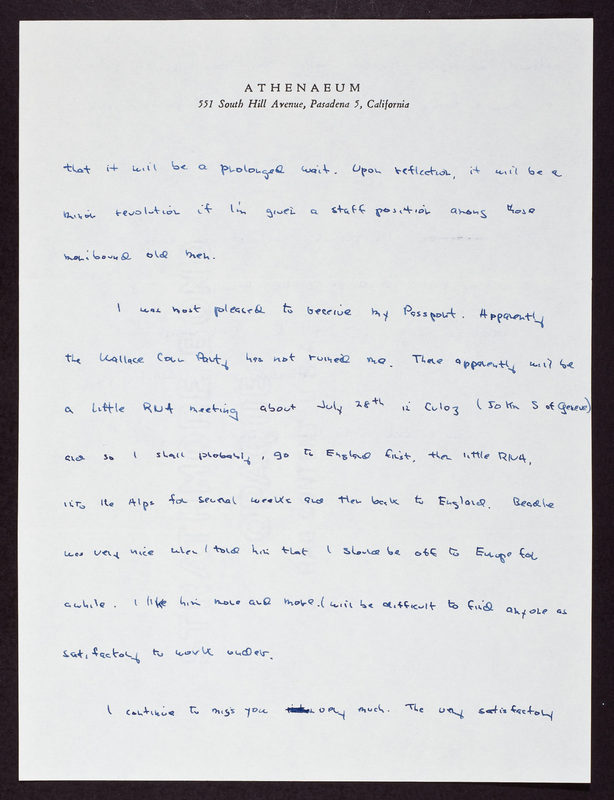 ATHENAEUM
551 South Hill Avenue, Pasadena 5, California
that it will be a prolonged wait. Upon reflection, it will be a
minor revolution if I'm given a staff position among those
moribound old men.
I was most pleased to receive my Passport. Apparently
the Wallace Party has not ruined me. There apparently will be
a little RNA meeting about July 28th in Culoz (50 Km S of Geneve)
and so I shall probably, go to England first, then little RNA,
into the Alps for several weeks and then back to England. Beadle
was very nice when I told him that I should be off to Europe for
awhile. I like him more and more. I will be difficult to find anyone as
satisfactory to work under.
I continue to miss you very much. The very satisfactory